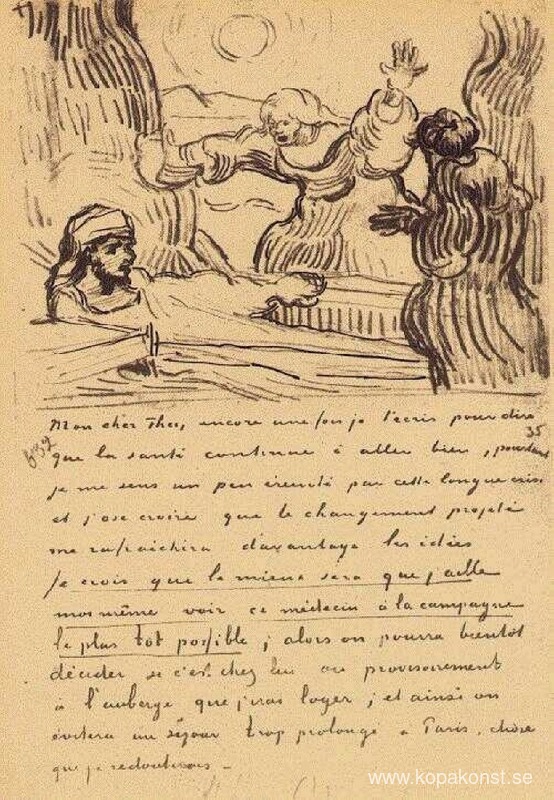 Mon cher Theo, encore une fois je t'ecris pour dire
35
632
que la santé continue à aller bien, pourtant
je me sens un peu éreinté par cette longue crise
et j'ose croire que le changement projeté
me rafraichira d'avantage les idées
Je crois que le mieux sera que j'aille
moi même voir ce médecin à la campagne
le plus tot possible ; alors on pourra bientôt
décider si c'est chez lui ou provisoirement
à l'auberge que j'irai loger ; et ainsi on
evitera un séjour trop prolongé à Paris, chose
que je redouterais –
www.kopakonst.se